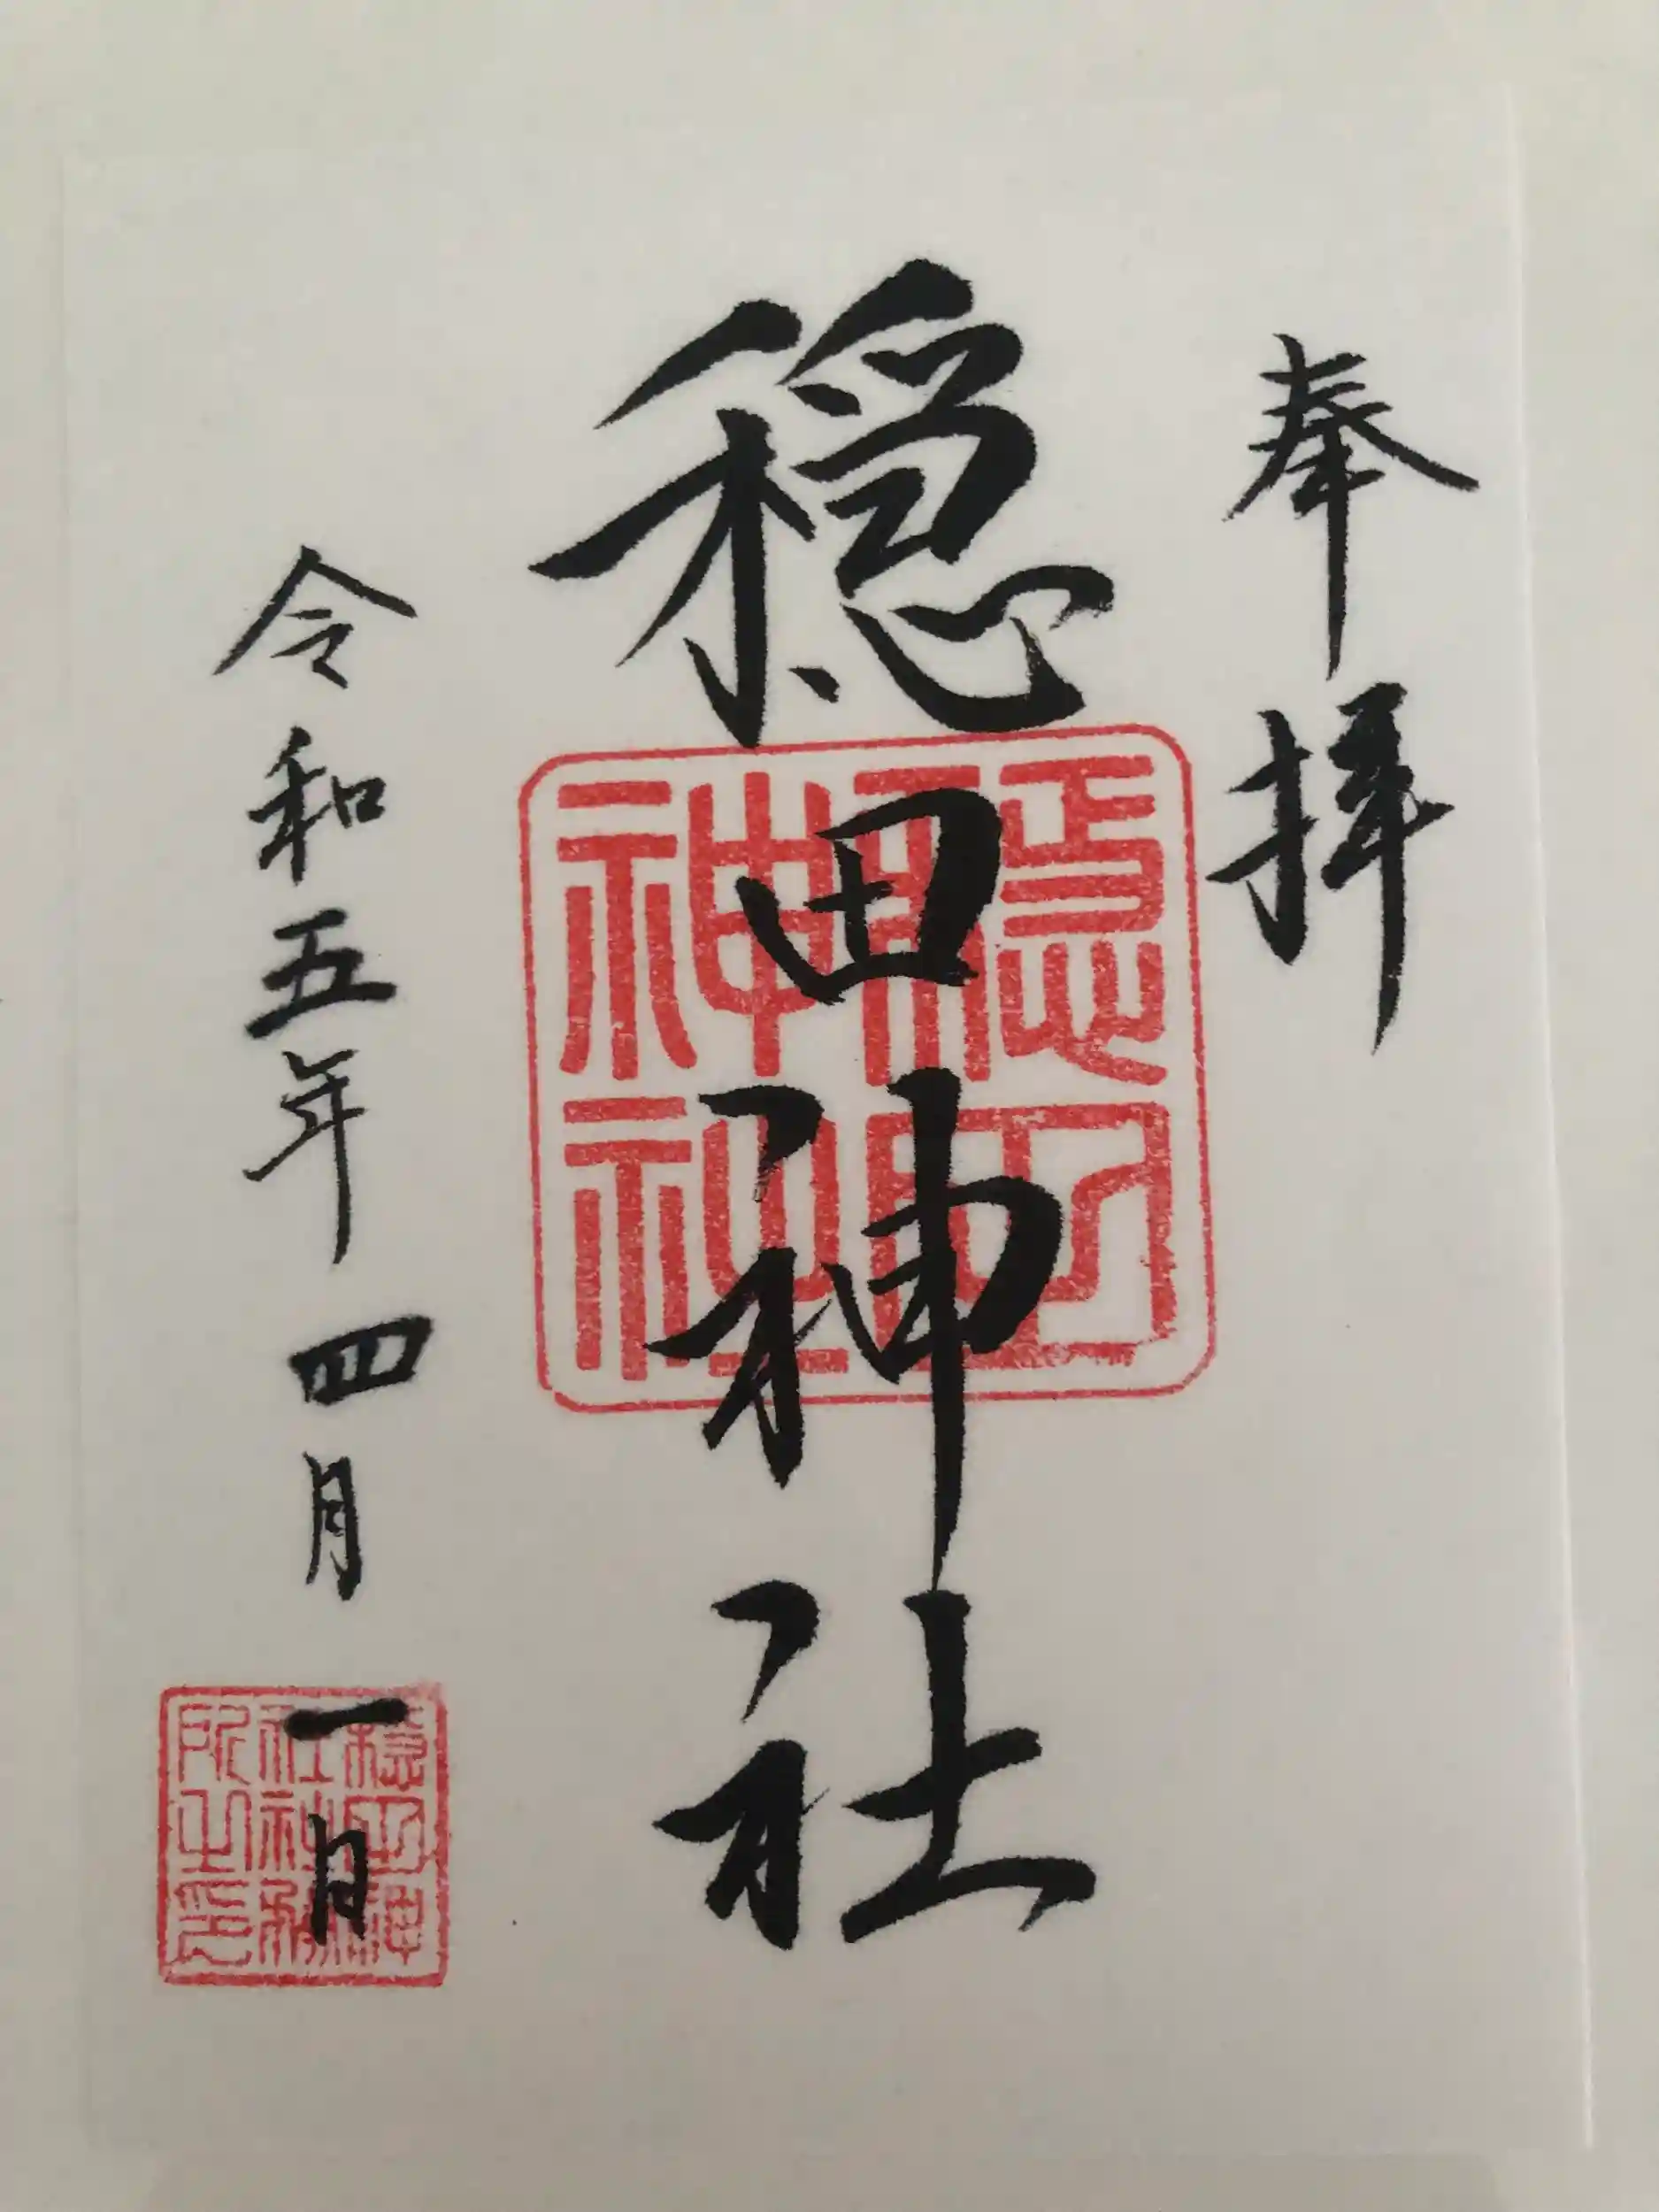 奉拝
穏田神社
穏田神社
令和五年四月一日
穏田神社社務所之印